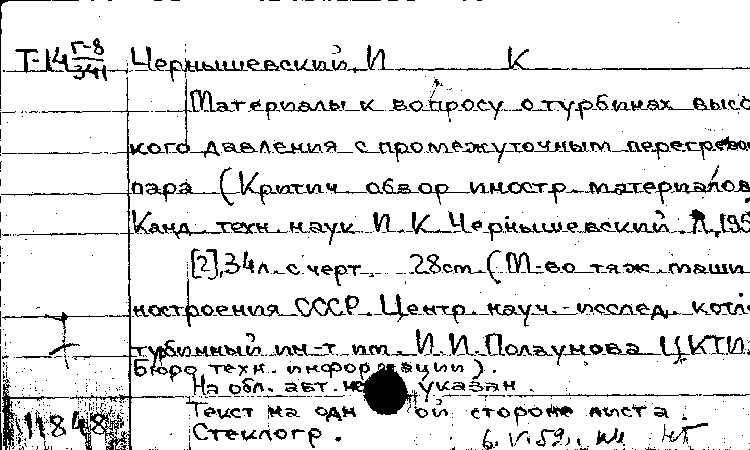 Т-14 Г-8/341 Чернышевский, И К
Материалы к вопросу о турбинах высо
кого давления с промежуточным перегревом
пара (Критич. обзор иностр. материалов
Канд. техн. наук И. К. Чернышевский. Л, 195
[2], 34 л. с черт. 28 см (М-во тяж. маши
ностроения СССР. Центр. науч.-исслед. котло
турбинный ин-т им. И. И. Ползунова ЦКТИ.
Бюро техн. информации).
На обл. авт. не указан.
Текст на одной стороне листа.
Стеклогр.
11848